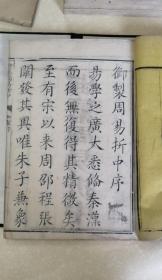 御製周易折中序
易學之廣大悉備秦漢
而後無復得其精微矣
至有宋以来周邵程張
闡發其奧唯朱子兼象